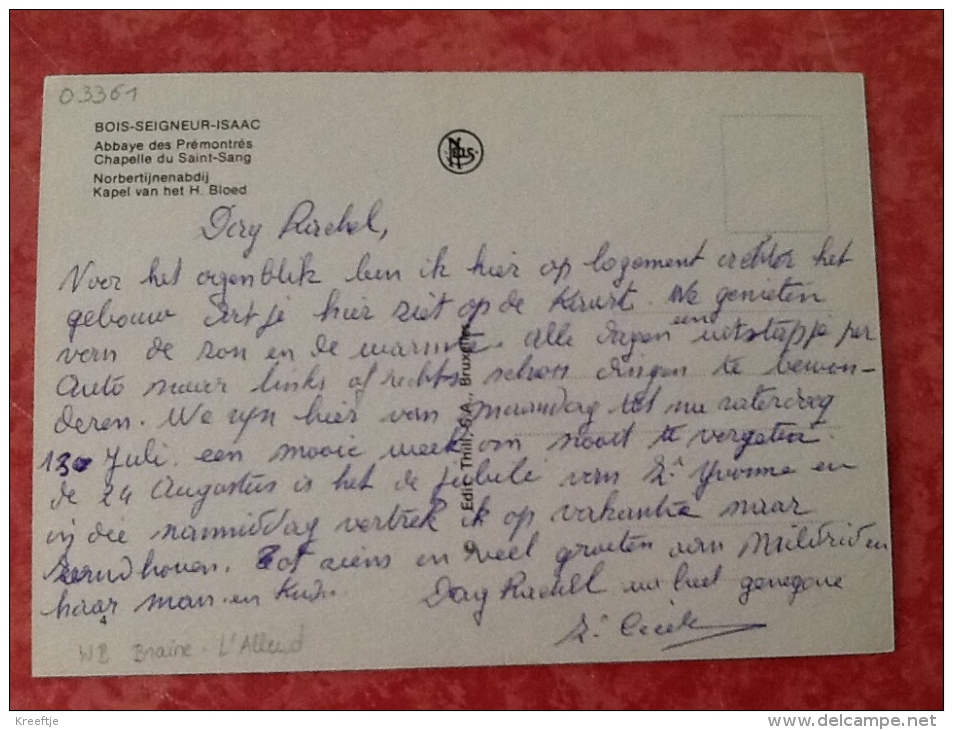 03361
BOIS-SEIGNEUR-ISAAC
Abbaye des Prémontrés
Chapelle du Saint-Sang
Norbertijnenabdij
Kapel van het H. Bloed
Nels
Dag Rachel,
Voor het ogenblik ben ik hier op logement achter het
gebouw dat je hier ziet op de kaart. We genieten
van de zon en de warmte. Alle dagen een uitstapje per
Auto naar links of rechts schoon dingen te bewon-
deren. We zijn hier van maandag tot nu zaterdag
13 Juli. een mooie week om nooit te vergeten.
de 24 Augustus is het de jubilé van Zr Yvonne en
in die namiddag vertrek ik op vakantie naar
Tot ziens en veel groeten aan Mildrid en
haar man en
Dag Rachel uw heel genegene
Zr Cecile
Edit. Thill, S.A., Bruxelles
4
WB Braine-L'Alleud
Kreeftje
www.delcampe.net